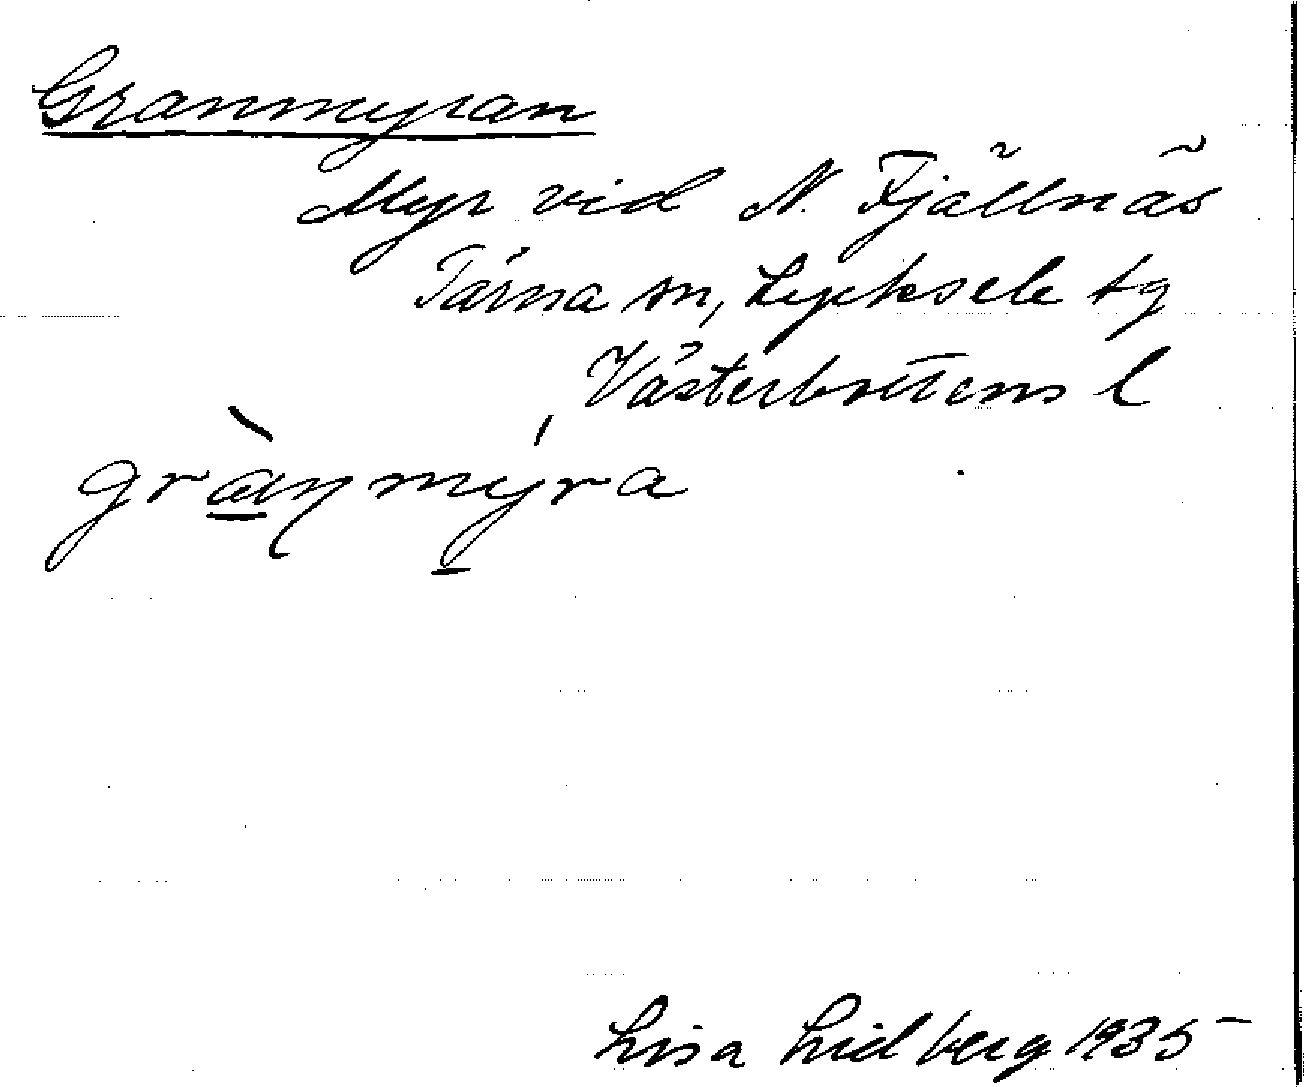 Granmyran
Myr vid N. Fjällnäs
Tärna sn, Lycksele tg
Västerbottens l
grànmýra
Lisa Lidberg 1935